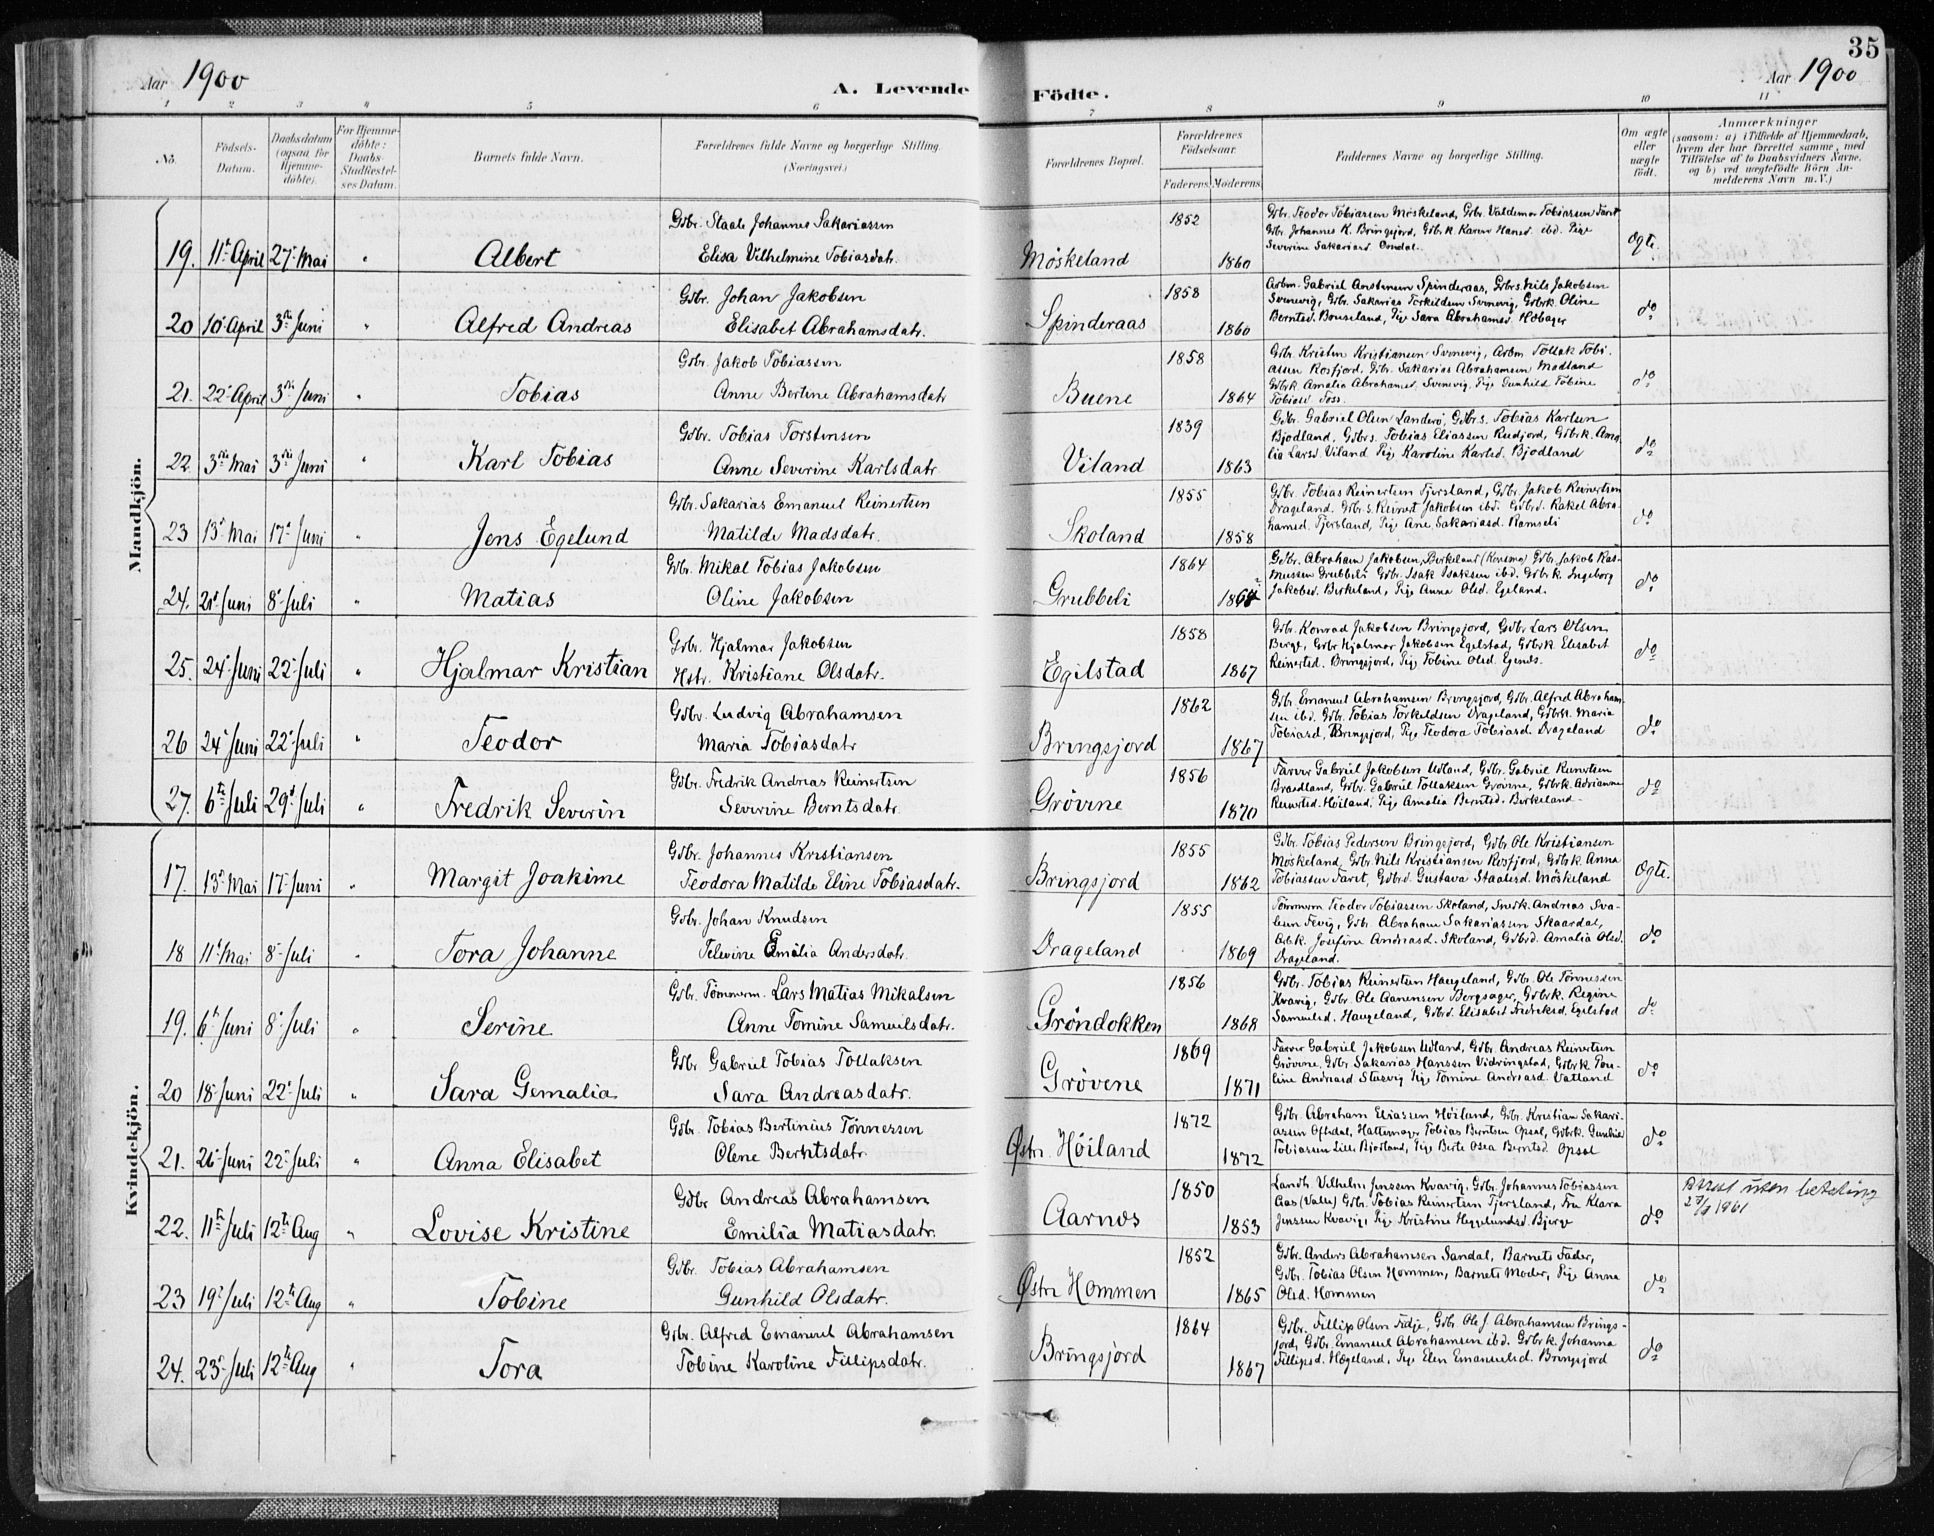 35
Aar 1900
A. Levende Födte.
Aar 1900
1 2 3 4 5 6 7 8 9 10 11
No.
Födsels-Datum.
Daabsdatum (ogsaa for Hjemme-döbte).
For Hjemme-döbte: Daabs-Stadfæstel-ses Datum.
Barnets fulde Navn.
Forældrenes fulde Navne og borgerlige Stilling. (Næringsvei.)
Forældrenes Bopæl.
Forældrenes Födselsaar.
Faderens. Moderens.
Faddernes Navne og borgerlige Stilling.
Om ægte eller uægte födt.
Anmærkninger
(saasom: a) i Tilfælde af Hjemmedaab, hvem der har forrettet samme, med Tilföielse af to Daabsvidners Navne, og b) ved uægtefödte Börn An-melderens Navn m. V.)
Mandkjön.
19. 11t April 27t Mai " Albert
Gdbr. Staale Johannes Sakariassen
Elisa Vilhelmine Tobiasdatr.
Møskeland 1852 1860
Gdbr. Teodor Tobiassen Møskeland, Gdbr. Valdemar Tobiassen Faret
Gdbr. Johannes K. Bringsjord, Gdbrk Karen Hansd. ibd. Pige
Severine Sakariasd. Omdal.
Ogte.
20 10t April 3die Juni " Alfred Andreas
Gdbr. Johan Jakobsen
Elisabet Abrahamsdatr.
Spinderaas 1858 1860
Arbm. Gabriel Anstensen Spinderaas, Gdbrs. Nils Jakobsen
Svenevig, Gdbr. Sakarias Torkildsen Svenevig, Gdbrk. Oline
Berntsd. Bouseland, Pige Sara Abrahamsd.
do
21. 22t April 3die Juni " Tobias
Gdbr. Jakob Tobiassen
Anne Bertine Abrahamsdatr
Buene 1858 1864
Gdbr. Kristen Kristiansen Svenevig, Arbm Tollak Tobi-
assen Rosfjord, Gdbr. Sakarias Abrahamsen Modland
Gdbrk. Amalia Abrahamsd. Svenevig, Pige Gunhild Tobine
Tobiasd Foss.
do
22. 3die Mai 3die Juni " Karl Tobias
Gdbr. Tobias Torstensen
Anne Severine Karlsdatr
Viland 1839 1863
Gdbr. Gabriel Olsen Landerø, Gdbrs. Tobias Karlsen
Bjodland, Gdbrs. Tobias Eliassen Rudjord, Gdbrk. Ama-
lia Larsd. Viland Pige Karoline Karlsd. Bjodland
do
23 13d Mai 17d Juni " Jens Egelund
Gdbr. Sakarias Emanuel Reinertsen
Matilde Madsdatr.
Skoland 1855 1858
Gdbr. Tobias Reinertsen Tjersland, Gdbr. Jakob Reinertsen
Drageland. Gdbr.s. Reinert Jakobsen ibd. Gdbrd. Rakel Abra-
hamsd. Tjersland, Pige Ane Sakariasd. Ramseli
do
24. 21d Juni 8d Juli " Matias
Gdbr. Mikal Tobias Jakobsen
Oline Jakobsen
Grubbeli 1864
Gdbr. Abraham Jakobsen, Birkeland (Konsmo) Gdbr. Jakob Ras-
mussen Grubbeli Gdbr. Isak Isaksen ibd. Gdbrk. Ingeborg
Jakobsd. Birkeland, Pige Anna Olsd. Egeland.
do
25. 24d Juni 22d Juli " Hjalmar Kristian
Gdbr. Hjalmar Jakobsen
Hstr. Kristiane Olsdatr.
Egilstad 1858 1867
Gdbr. Konrad Jakobsen Bringsjord, Gdbr Lars Olsen
Berge, Gdbr Hjalmar Jakobsen Egelstad, Gdbrk Elisabet
Reinertsd. Bringsjord, Pige Tobine Olsd. Egenes.
do
26 24d Juni 22d Juli " Teodor
Gdbr. Ludvig Abrahamsen
Maria Tobiasdatr
Bringsjord 1862 1867
Gdbr. Emanuel Abrahamsen Bringsjord, Gdbr. Alfred Abraham-
sen ibd. Gdbr. Tobias Torkeldsen Drageland, Gdbrk. Maria
Tobiasd. Bringsjord, Pige Teodora Tobiasd. Drageland
do
27. 6te Juli 29d Juli " Fredrik Severin
Gdbr. Fredrik Andreas Reinertsen
Severine Berntsdatr.
Grøvene 1856 1870
Farver Gabriel Jakobsen Udland, Gdbr. Gabriel Reinertsen
Braadland, Gdbr. Gabriel Tollaksen Grøvene, Gdbrk. Adrianne
Reinertsd. Høiland, Pige Amalia Berntsd. Birkeland
do
Kvindekjön.
17. 13d Mai 17d Juni " Margit Joakime
Gdbr. Johannes Kristiansen
Teodora Matilde Eline Tobiasdatr.
Bringsjord 1855 1862
Gdbr. Tobias Pedersen Bringsjord, Gdbr Ole Kristiansen
Møskeland, Gdbr. Nils Kristiansen Rosfjord, Gdbrk. Anna
Tobiassen Faret, Gdbrd. Gustava Staalesd. Møskeland
Ogte.
18 11t Mai 8d Juli " Tora Johanne
Gdbr. Johan Knudsen
Televine Emilia Andersdatr.
Drageland 1855 1869
Tømmerm Teodor Tobiassen Skoland, Snedk. Andreas
Gdbr. Abraham Sakariassen Skaardal,
Josefine Andreasd. Skoland, Gdbrd. Amalia Olsd.
Drageland.
do
19. 6t Juni 8d Juli " Serine
Gdbr. Tømmerm. Lars Matias Mikalsen
Anne Tomine Samuelsdatr.
Grøndokken 1856 1868
Gdbr. Tobias Reinertsen Haugeland, Gdbr. Ole Tønnessen
Kvavig, Gdbr. Ole Aanensen Bergsager, Gdbrk. Regine
Samuelsd. Haugeland, Gdbrd. Elisabet Fredriksd. Egelstad
do
20 18d Juni 22d Juli " Sara Gemalia
Gdbr Gabriel Tobias Tollaksen
Sara Andreasdatr.
Grøvene 1869 1871
Farver Gabriel Jakobsen Udland, Gdbr. Andreas Reinertsen
Grøvene, Gdbr Sakarias Hanssen Vidringstad, Gdbrk Pou-
line Andreasd. Stusvig Pige Tomine Andreasd. Vatland
do
21. 26d Juni 22d Juli " Anna Elisabet
Gdbr. Tobias Bertinius Tønnessen
Olene Berntsdatr.
Østr. Høiland 1872 1872
Gdbr. Abraham Eliassen Høiland, Gdbr. Kristian Sakari-
assen Oftedal, Hattemager Tobias Berntsen Opsal, Gdbrk. Gunhild
Tobiassen Lille Bjodland, Pige Berte Osea Berntsd. Opsal
do
22. 11te Juli 12te Aug " Lovise Kristine
Gdbr Andreas Abrahamsen
Emilia Matiasdatr.
Aarnes 1850 1853
Landh. Vilhelm Jenssen Kvavig. Gdbr. Johannes Tobiassen
Aas (Valle) Gdbr. Tobias Reinertsen Tjersland, Fru Klara
Jenssen Kvavig, Pige Kristine Heggelundsd. Bjerge
do
Attest uten betaling
1961
23 19d Juli 12te Aug " Tobine
Gdbr. Tobias Abrahamsen
Gunhild Olsdatr.
Østr Hommen 1852 1865
Gdbr. Anders Abrahamsen Sandal, Barnets Fader,
Gdbr. Tobias Olsen Hommen, Barnets Moder, Pige Anna
Olsd. Hommen
do
24. 23d Juli 12te Aug " Tora
Gdbr. Alfred Emanuel Abrahamsen
Tobine Karoline Fillipsdatr.
Bringsjord 1864 1867
Gdbr. Fillip Olsen Fidje, Gdbr. Ole J. Abrahamsen Brings-
jord, Gdbr. Emanuel Abrahamsen ibd. Gdbrk. Johanna
Fillipsd. Hægeland, Pige Elen Emanuelsd. Bringsjord
do